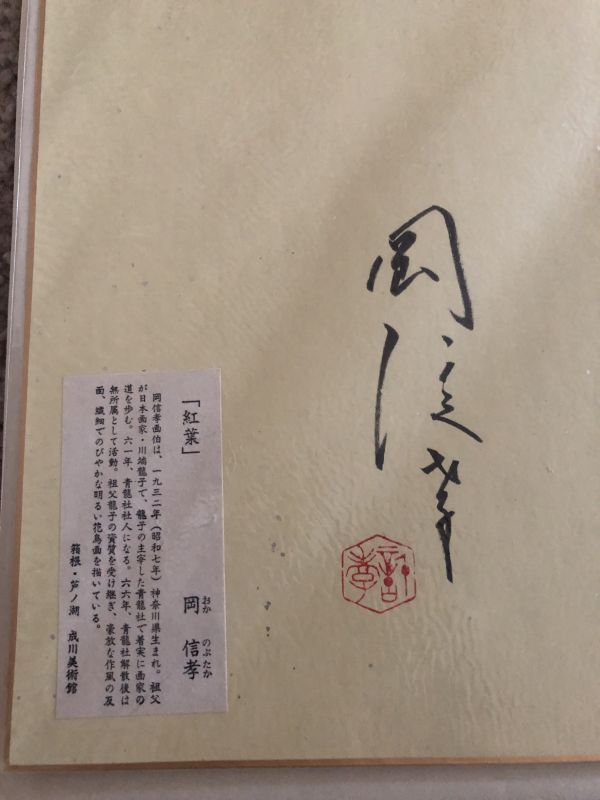 岡信孝
信孝
「紅葉」 岡 信孝
おか のぶたか
岡信孝画伯は、一九三二年(昭和七年)神奈川県生まれ。祖父
が日本画家・川端龍子で、龍子の主宰した青龍社で着実に画家の
道を歩む。六一年、青龍社社人になる。六六年、青龍社解散後は
無所属として活動。祖父龍子の資質を受け継ぎ、豪放な作風の反
面、繊細でのびやかな明るい花鳥画を描いている。
箱根・芦ノ湖 成川美術館